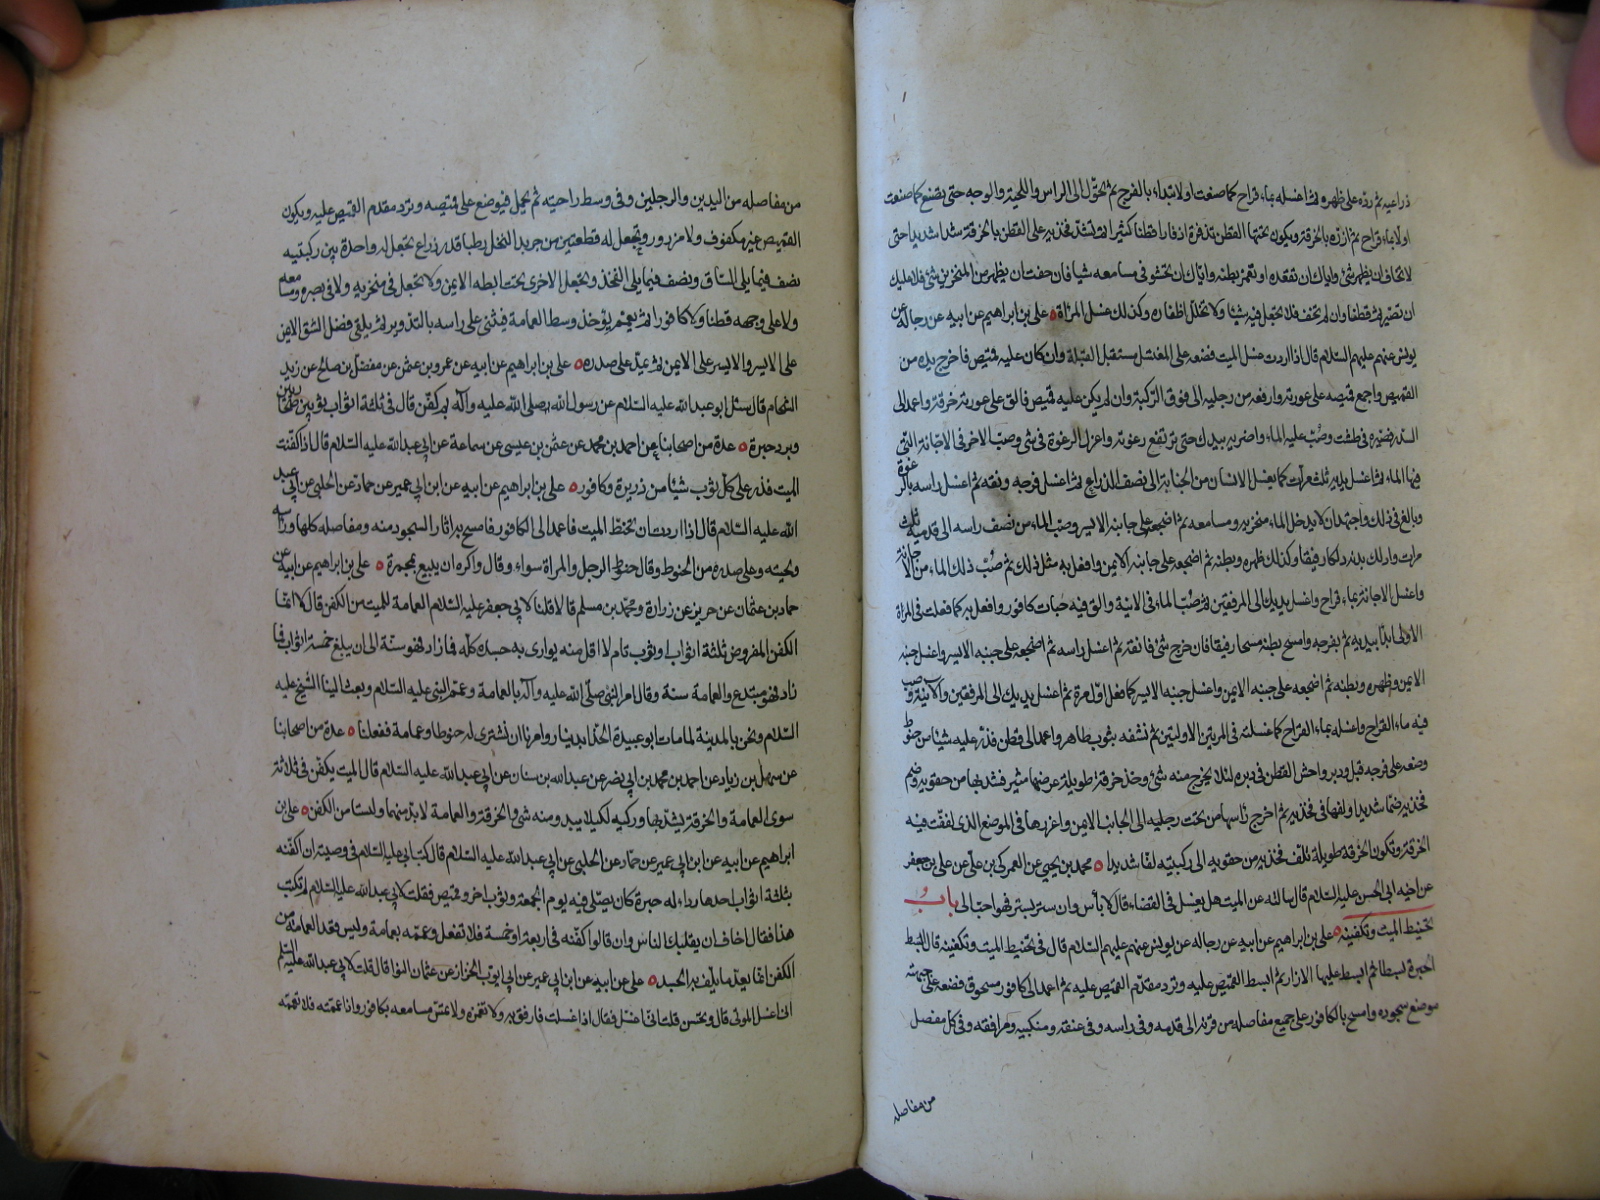 ذراعيه ثم رده على ظهره ثم اغسله بماء قراح كما صنعت اولا تبدأ بالفرج ثم تحول الى الراس واللحية والوجه حتى يصنع كما صنعت
اولا بماء قراح ثم ازره بالخرقة ويكون تحتها القطن تذفره به اذفارا قطنا كثيرا ثم تشد فخذيه على القطن بالخرقة شدا شديدا حتى
لا تخاف ان يظهر شئ واياك ان تقعده او تغمز بطنه واياك ان تحشو فى مسامعه شيئا فان خفت ان يظهر من المنخرين شئ فلا عليك
ان تصير ثم قطنا وان لم تخف فلا تجعل فيه شيئا ولا تخلل اظفاره وكذلك غسل المرأة علي بن ابراهيم عن ابيه عن رجاله عن
يونس عنهم عليهم السلام قال اذا اردت غسل الميت فضعه على المغتسل مستقبل القبلة وان كان عليه قميص فاخرج يده من
القميص واجمع قميصه على عورته وارفعه من رجليه الى فوق الركبة وان لم يكن عليه قميص فالق على عورته خرقة واعمد الى
السدر فصيره فى طشت وصب عليه الماء واضربه بيدك حتى ترتفع رغوته واعزل الرغوة فى شئ وصب الاخر فى الاجانة التى
فيها الماء ثم اغسل يديه ثلث مرات كما يغسل الانسان من الجنابة الى نصف الذراع ثم اغسل فرجه ونقه ثم اغسل راسه بالرغوة
وبالغ فى ذلك واجتهد ان لا يدخل الماء منخريه ومسامعه ثم اضجعه على جانبه الايسر وصب الماء من نصف راسه الى قدميه ثلث
مرات وادلك بدنه دلكا رفيقا وكذلك ظهره وبطنه ثم اضجعه على جانبه الايمن وافعل به مثل ذلك ثم صب ذلك الماء من الاجانة
واغسل الاجانة بماء قراح واغسل يديك الى المرفقين ثم صب الماء فى الانية والق فيه حبات كافور وافعل به كما فعلت فى المرة
الاولى ابدأ بيديه ثم بفرجه وامسح بطنه مسحا رفيقا فان خرج شئ فانقه ثم اغسل راسه ثم اضجعه على جنبه الايسر واغسل جنبه
الايمن وظهره وبطنه ثم اضجعه على جنبه الايمن واغسل جنبه الايسر كما فعل اول مرة ثم اغسل يديك الى المرفقين والانية وصب
فيه ماء القراح واغسله بماء القراح كما غسلته فى المرتين الاوليتين ثم نشفه بثوب طاهر واعمد الى قطن فذر عليه شيئا من حنوط
وضعه على فرجه قبل ودبر واحش القطن فى دبره لئلا يخرج منه شئ وخذ خرقة طويلة عرضها شبر فشدها من حقويه وضم
فخذيه ضما شديدا ولفها فى فخذيه ثم اخرج رأسها من تحت رجليه الى الجانب الايمن واغرزها فى الموضع الذى لففت فيه
الخرقة وتكون الخرقة طويلة تلف فخذيه من حقويه الى ركبتيه لفا شديدا محمد بن يحيى عن العمركى بن على عن على بن جعفر
عن اخيه ابى الحسن عليه السلام قال سألته عن الميت هل يغسل فى الفضاء قال لا بأس وان ستر بستر فهو احب الى باب
تحنيط الميت وتكفينه على بن ابراهيم عن ابيه عن رجاله عن يونس عنهم عليهم السلام قال فى تحنيط الميت وتكفينه قال ابسط
الحبرة بسطا ثم ابسط عليها الازار ثم ابسط القميص عليه وترد مقدم القميص عليه ثم اعمد الى كافور مسحوق فضعه على جبهته
موضع سجوده وامسح بالكافور على جميع مفاصله من قرنه الى قدمه وفى راسه وفى عنقه ومنكبيه ومرافقه وفى كل مفصل
من مفاصله
من مفاصله من اليدين والرجلين وفى وسط راحتيه ثم يحمل فيوضع على قميصه وترد مقدم القميص عليه ويكون
القميص غير مكفوف ولا مزرور وتجعل له قطعتين من جريد النخل رطبا قدر ذراع تجعل له واحدة بين ركبتيه
نصف فيما يلى الساق ونصف فيما يلى الفخذ وتجعل الاخرى تحت ابطه الايمن ولا تجعل فى منخريه ولا فى بصره ومسامعه
ولا على وجهه قطنا ولا كافورا ثم يعمم يؤخذ وسط العمامة فيثنى على راسه بالتدوير ثم يلقى فضل الشق الايمن
على الايسر والايسر على الايمن ثم يمد على صدره على بن ابراهيم عن ابيه عن عمرو بن عثمن عن مفضل بن صالح عن زيد
الشحام قال سئل ابو عبد الله عليه السلام عن رسول الله صلى الله عليه وآله بم كفن قال فى ثلثة اثواب ثوبين صحاريين
وبرد حبرة عدة من اصحابنا عن احمد بن محمد عن عثمن بن عيسى عن سماعة عن ابى عبد الله عليه السلام قال اذا كفنت
الميت فذر على كل ثوب شيئا من ذريرة وكافور على بن ابراهيم عن ابيه عن ابن ابى عمير عن حماد عن الحلبى عن ابى عبد
الله عليه السلام قال اذا اردت ان تحنط الميت فاعمد الى الكافور فامسح به اثار السجود منه ومفاصله كلها وراسه
ولحيته وعلى صدره من الحنوط وقال حنوط الرجل والمراة سواء وقال واكره ان يتبع بمجمرة على بن ابراهيم عن ابيه عن
حماد بن عثمان عن حريز عن زرارة ومحمد بن مسلم قالا قلنا لابى جعفر عليه السلام العمامة للميت من الكفن قال لا انما
الكفن المفروض ثلثة اثواب وثوب تام لا اقل منه يوارى به جسده كله فما زاد فهو سنة الى ان يبلغ خمسة اثواب فما
زاد فهو مبتدع والعمامة سنة وقال امر النبى صلى الله عليه وآله بالعمامة وعمم النبى عليه السلام وبعث الينا الشيخ عليه
السلام ونحن بالمدينة لما مات ابو عبيدة الحذاء بدينار وامرنا ان نشترى له حنوطا وعمامة ففعلنا عدة من اصحابنا
عن سهل بن زياد عن احمد بن محمد بن ابى نصر عن عبد الله بن سنان عن ابى عبد الله عليه السلام قال الميت يكفن فى ثلاثة
سوى العمامة والخرقة يشد بها وركيه لكيلا يبدو منه شئ والخرقة والعمامة لا بد منهما وليستا من الكفن على بن
ابراهيم عن ابيه عن ابن ابى عمير عن حماد عن الحلبى عن ابى عبد الله عليه السلام قال كتب ابى عليه السلام فى وصيته ان اكفنه
بثلثة اثواب احدها رداء له حبرة كان يصلى فيه يوم الجمعة وثوب اخر وقميص فقلت لابى عبد الله عليه السلام لم تكتب
هذا فقال اخاف ان يغلبك الناس وان قالوا كفنه فى اربعة او خمسة فلا تفعل وعممه بعمامة وليس فقد العمامة من
الكفن انما يعد ما يلف به الجسد على عن ابيه عن ابن ابى عمير عن ابى ايوب الخزاز عن عثمان النوا قال قلت لابى عبد الله عليه السلم
انى اغسل الموتى قال وتحسن قلت انى اغسل فقال اذا غسلت فارفق به ولا تغمزه ولا تمس مسامعه بكافور واذا عممته فلا تعممه